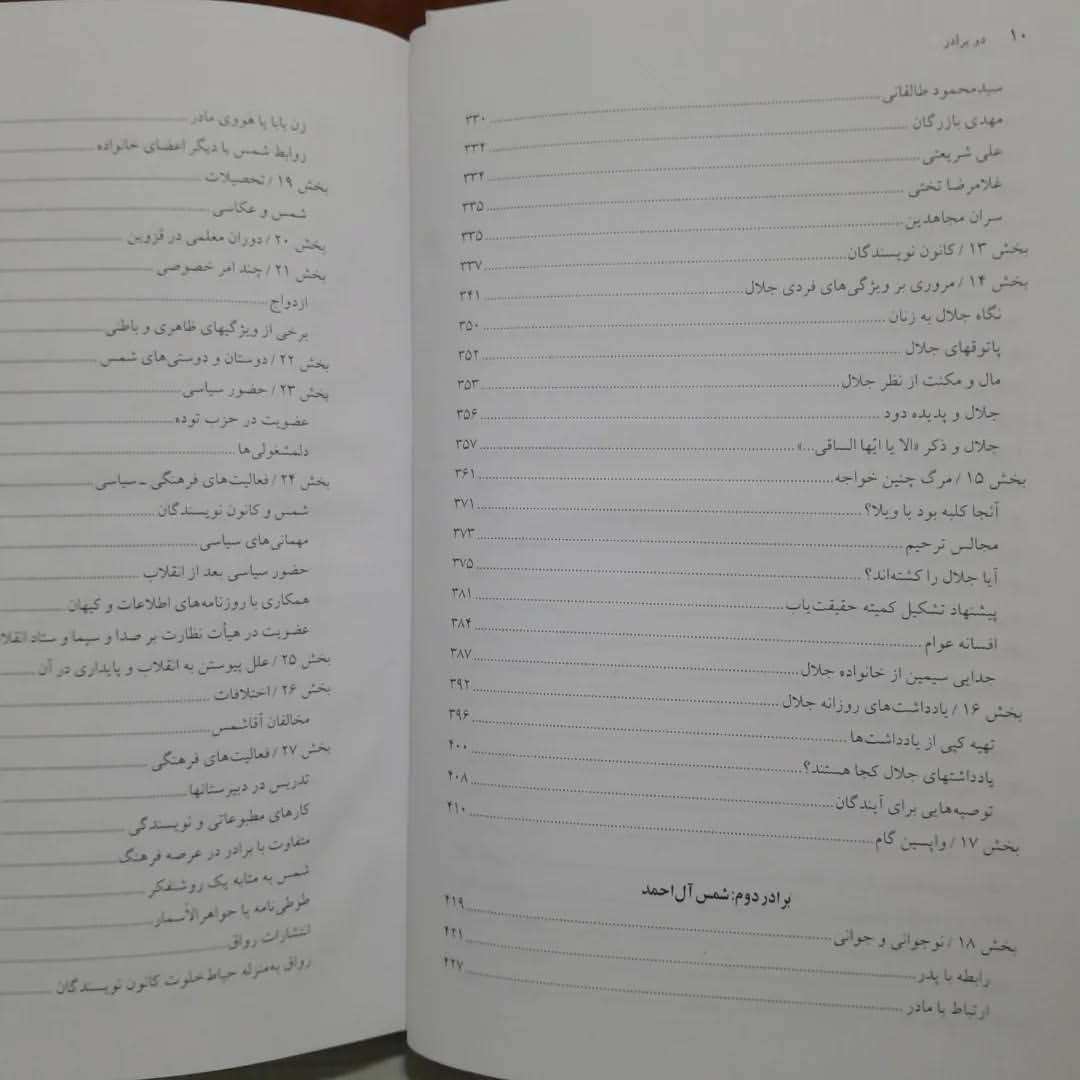 ۱۰ دو برادر
سیدمحمود طالقانی ۳۳۰
مهدی بازرگان ۳۳۴
علی شریعتی ۳۳۴
غلامرضا تختی ۳۳۵
سران مجاهدین ۳۳۵
بخش ۱۳ / کانون نویسندگان ۳۳۷
بخش ۱۴ / مروری بر ویژگی‌های فردی جلال ۳۴۱
نگاه جلال به زنان ۳۵۰
پاتوقهای جلال ۳۵۲
مال و مکنت از نظر جلال ۳۵۳
جلال و پدیده دود ۳۵۶
جلال و ذکر «الا یا ایّها الساقی...» ۳۵۷
بخش ۱۵ / مرگ چنین خواجه ۳۶۱
آنجا کلبه بود یا ویلا؟ ۳۷۱
مجالس ترحیم ۳۷۳
آیا جلال را کشته‌اند؟ ۳۷۵
پیشنهاد تشکیل کمیته حقیقت‌یاب ۳۸۱
افسانه عوام ۳۸۴
جدایی سیمین از خانواده جلال ۳۸۷
بخش ۱۶ / یادداشت‌های روزانه جلال ۳۹۲
تهیه کپی از یادداشت‌ها ۳۹۶
یادداشتهای جلال کجا هستند؟ ۴۰۰
توصیه‌هایی برای آیندگان ۴۰۸
بخش ۱۷ / واپسین گام ۴۱۰
برادر دوم: شمس آل‌احمد
بخش ۱۸ / نوجوانی و جوانی ۴۱۹
رابطه با پدر ۴۲۱
ارتباط با مادر ۴۲۷
زن بابا یا هووی مادر
روابط شمس با دیگر اعضای خانواده
بخش ۱۹ / تحصیلات
شمس و عکاسی
بخش ۲۰ / دوران معلمی در قزوین
بخش ۲۱ / چند امر خصوصی
ازدواج
برخی از ویژگیهای ظاهری و باطنی
بخش ۲۲ / دوستان و دوستی‌های شمس
بخش ۲۳ / حضور سیاسی
عضویت در حزب توده
دلمشغولی‌ها
بخش ۲۴ / فعالیت‌های فرهنگی ـ سیاسی
شمس و کانون نویسندگان
مهمانی‌های سیاسی
حضور سیاسی بعد از انقلاب
همکاری با روزنامه‌های اطلاعات و کیهان
عضویت در هیأت نظارت بر صدا و سیما و ستاد انقلا
بخش ۲۵ / علل پیوستن به انقلاب و پایداری در آن
بخش ۲۶ / اختلافات
مخالفان آقاشمس
بخش ۲۷ / فعالیت‌های فرهنگی
تدریس در دبیرستانها
کارهای مطبوعاتی و نویسندگی
متفاوت با برادر در عرصه فرهنگ
شمس به مثابه یک روشنفکر
طوطی‌نامه یا جواهرالأسمار
انتشارات رواق
رواق به‌منزله حیاط‌خلوت کانون نویسندگان